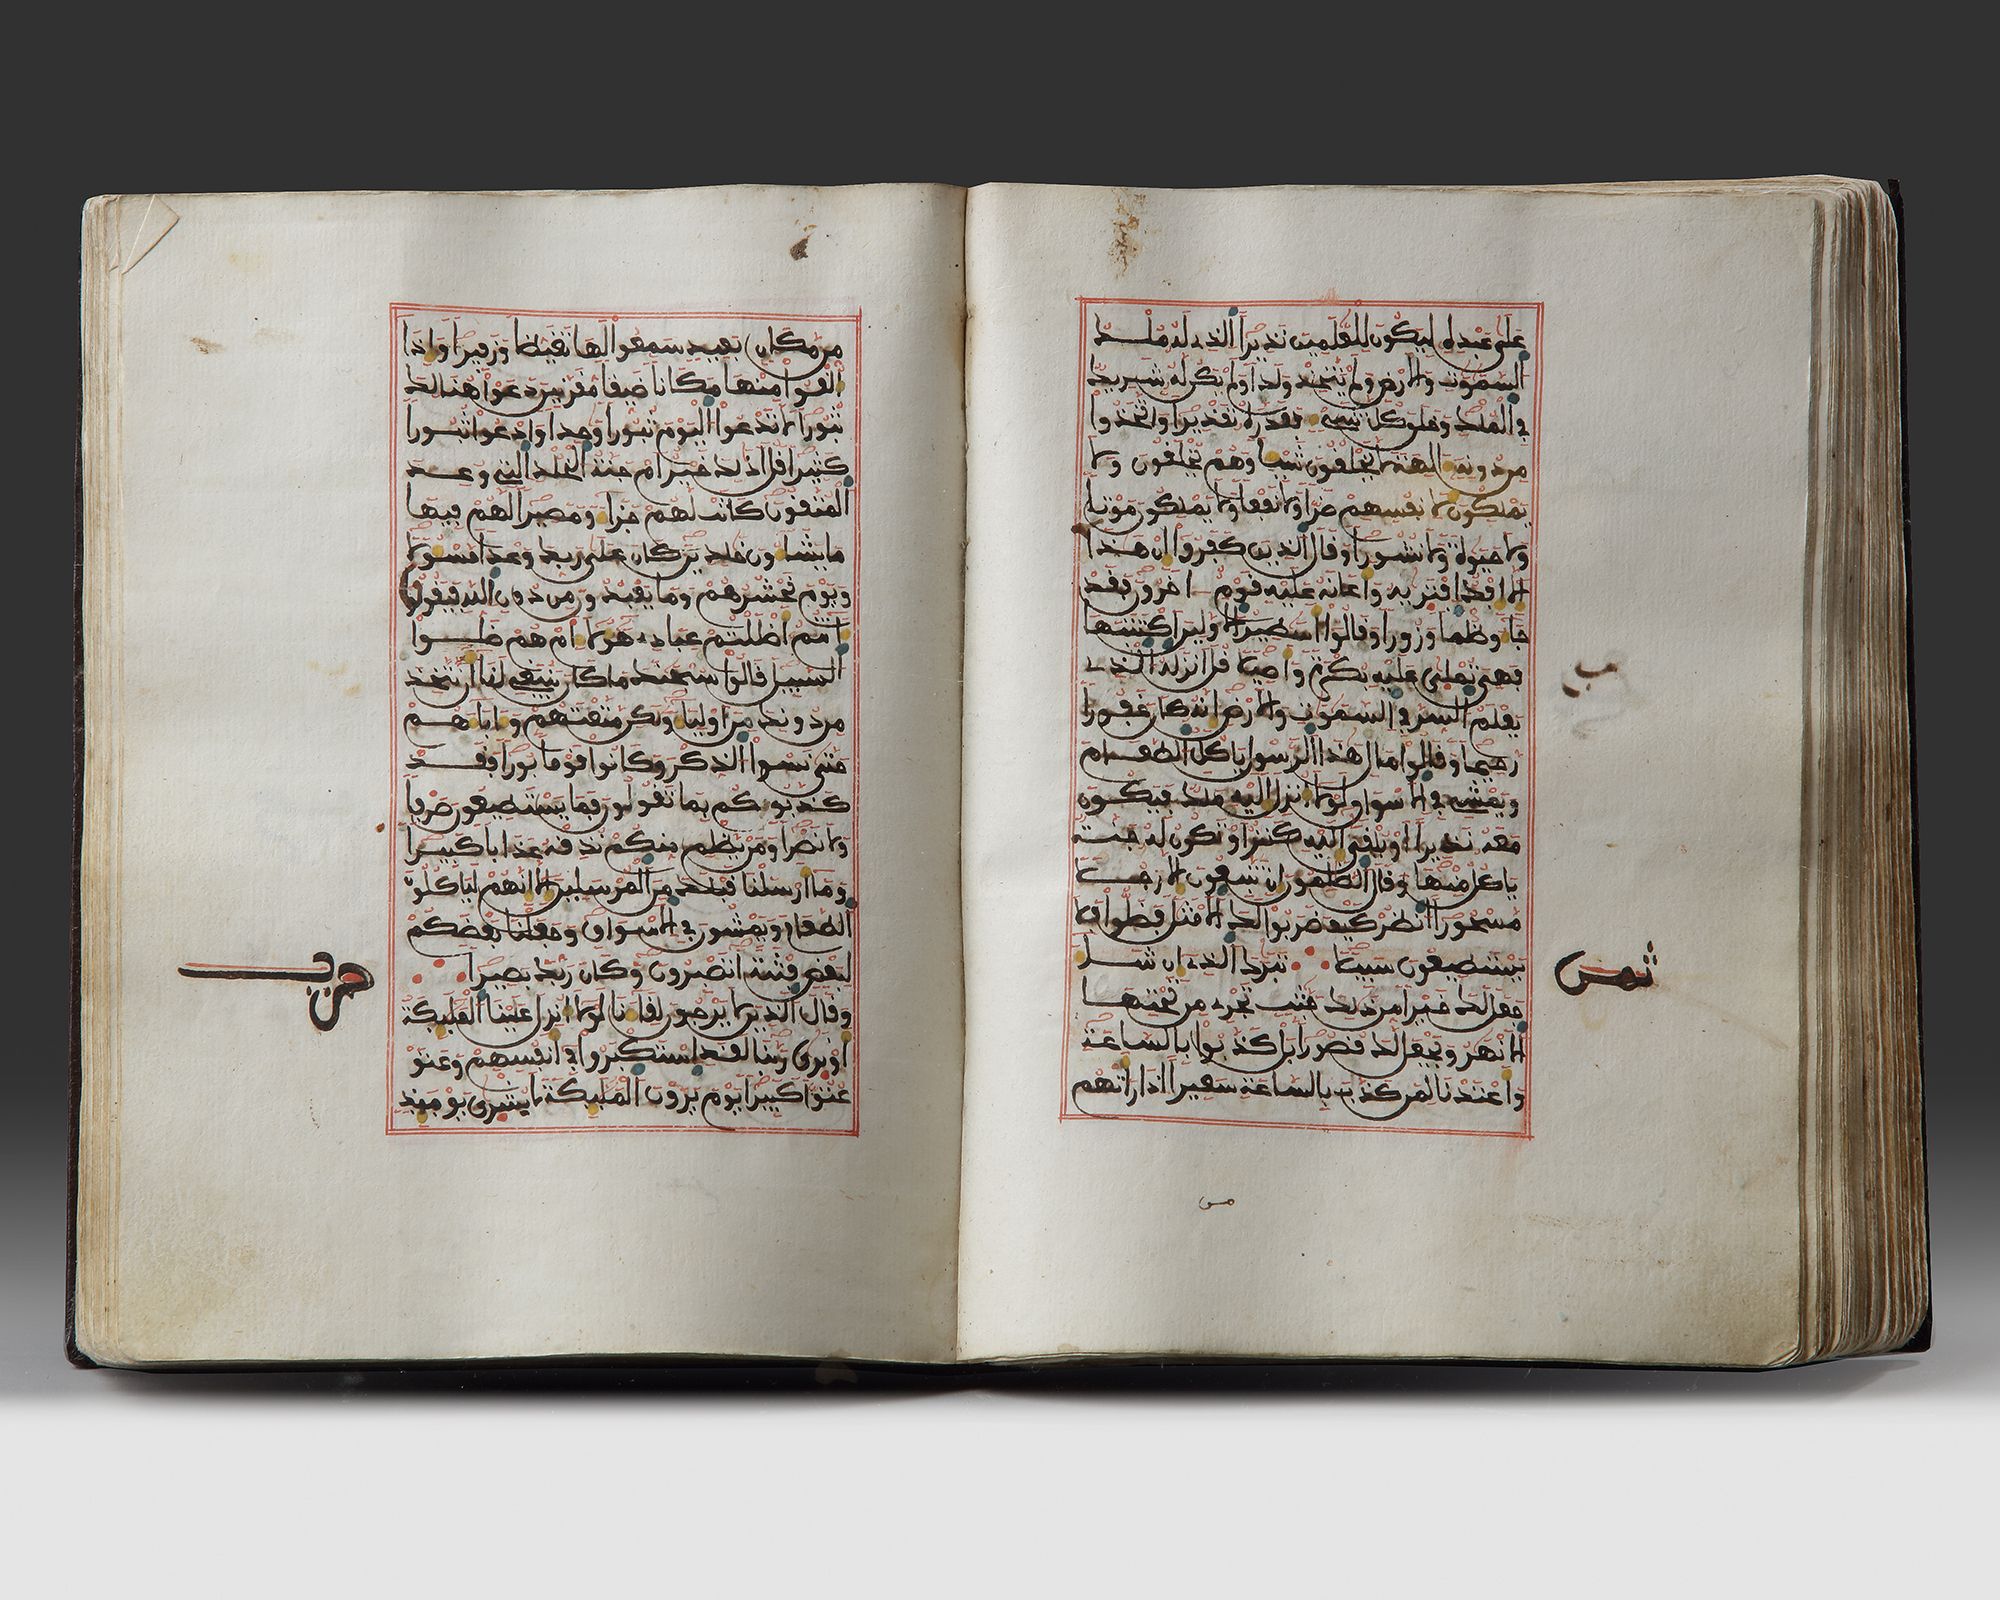 على عبده ليكون للعلمين نذيرا الذى له ملك
السموت والارض ولم يتخذ ولدا ولم يكن له شريك
في الملك وخلق كل شىء فقدره تقديرا واتخذوا
من دونه الهة لا يخلقون شيا وهم يخلقون ولا
يملكون لانفسهم ضرا ولا نفعا ولا يملكون موتا
ولا حيوة ولا نشورا وقال الذين كفروا ان هذا
الا افك افتريه واعانه عليه قوم اخرون فقد
جاءو ظلما وزورا وقالوا اسطير الاولين اكتتبها
فهى تملى عليه بكرة واصيلا قل انزله الذى
يعلم السر في السموت والارض انه كان غفورا
رحيما وقالوا مال هذا الرسول ياكل الطعام
ويمشى في الاسواق لولا انزل اليه ملك فيكون
معه نذيرا او يلقى اليه كنز او تكون له جنة
ياكل منها وقال الظلمون ان تتبعون الا رجلا
مسحورا انظر كيف ضربوا لك الامثل فضلوا فلا
يستطيعون سبيلا تبرك الذى ان شاء
جعل لك خيرا من ذلك جنت تجرى من تحتها
الانهر ويجعل لك قصورا بل كذبوا بالساعة
واعتدنا لمن كذب بالساعة سعيرا اذا راتهم
ثمن
من مكان بعيد سمعوا لها تغيظا وزفيرا واذا
القوا منها مكانا ضيقا مقرنين دعوا هنالك
ثبورا لا تدعوا اليوم ثبورا وحدا وادعوا ثبورا
كثيرا قل اذلك خير ام جنة الخلد التى وعد
المتقون كانت لهم جزاء ومصيرا لهم فيها
ما يشاءون خلدين كان على ربك وعدا مسولا
ويوم نحشرهم وما يعبدون من دون الله فيقول
انتم اضللتم عبادى هولاء ام هم ضلوا
السبيل قالوا سبحنك ما كان ينبغى لنا ان نتخذ
من دونك من اولياء ولكن متعتهم واباءهم
حتى نسوا الذكر وكانوا قوما بورا فقد
كذبوكم بما تقولون فما يستطيعون صرفا
ولا نصرا ومن يظلم منكم نذقه عذابا كبيرا
وما ارسلنا قبلك من المرسلين الا انهم لياكلون
الطعام ويمشون في الاسواق وجعلنا بعضكم
لبعض فتنة اتصبرون وكان ربك بصيرا
وقال الذين لا يرجون لقاءنا لولا انزل علينا المليكة
او نرى ربنا لقد استكبروا في انفسهم وعتو
عتوا كبيرا يوم يرون المليكة لا بشرى يوميذ
حزب